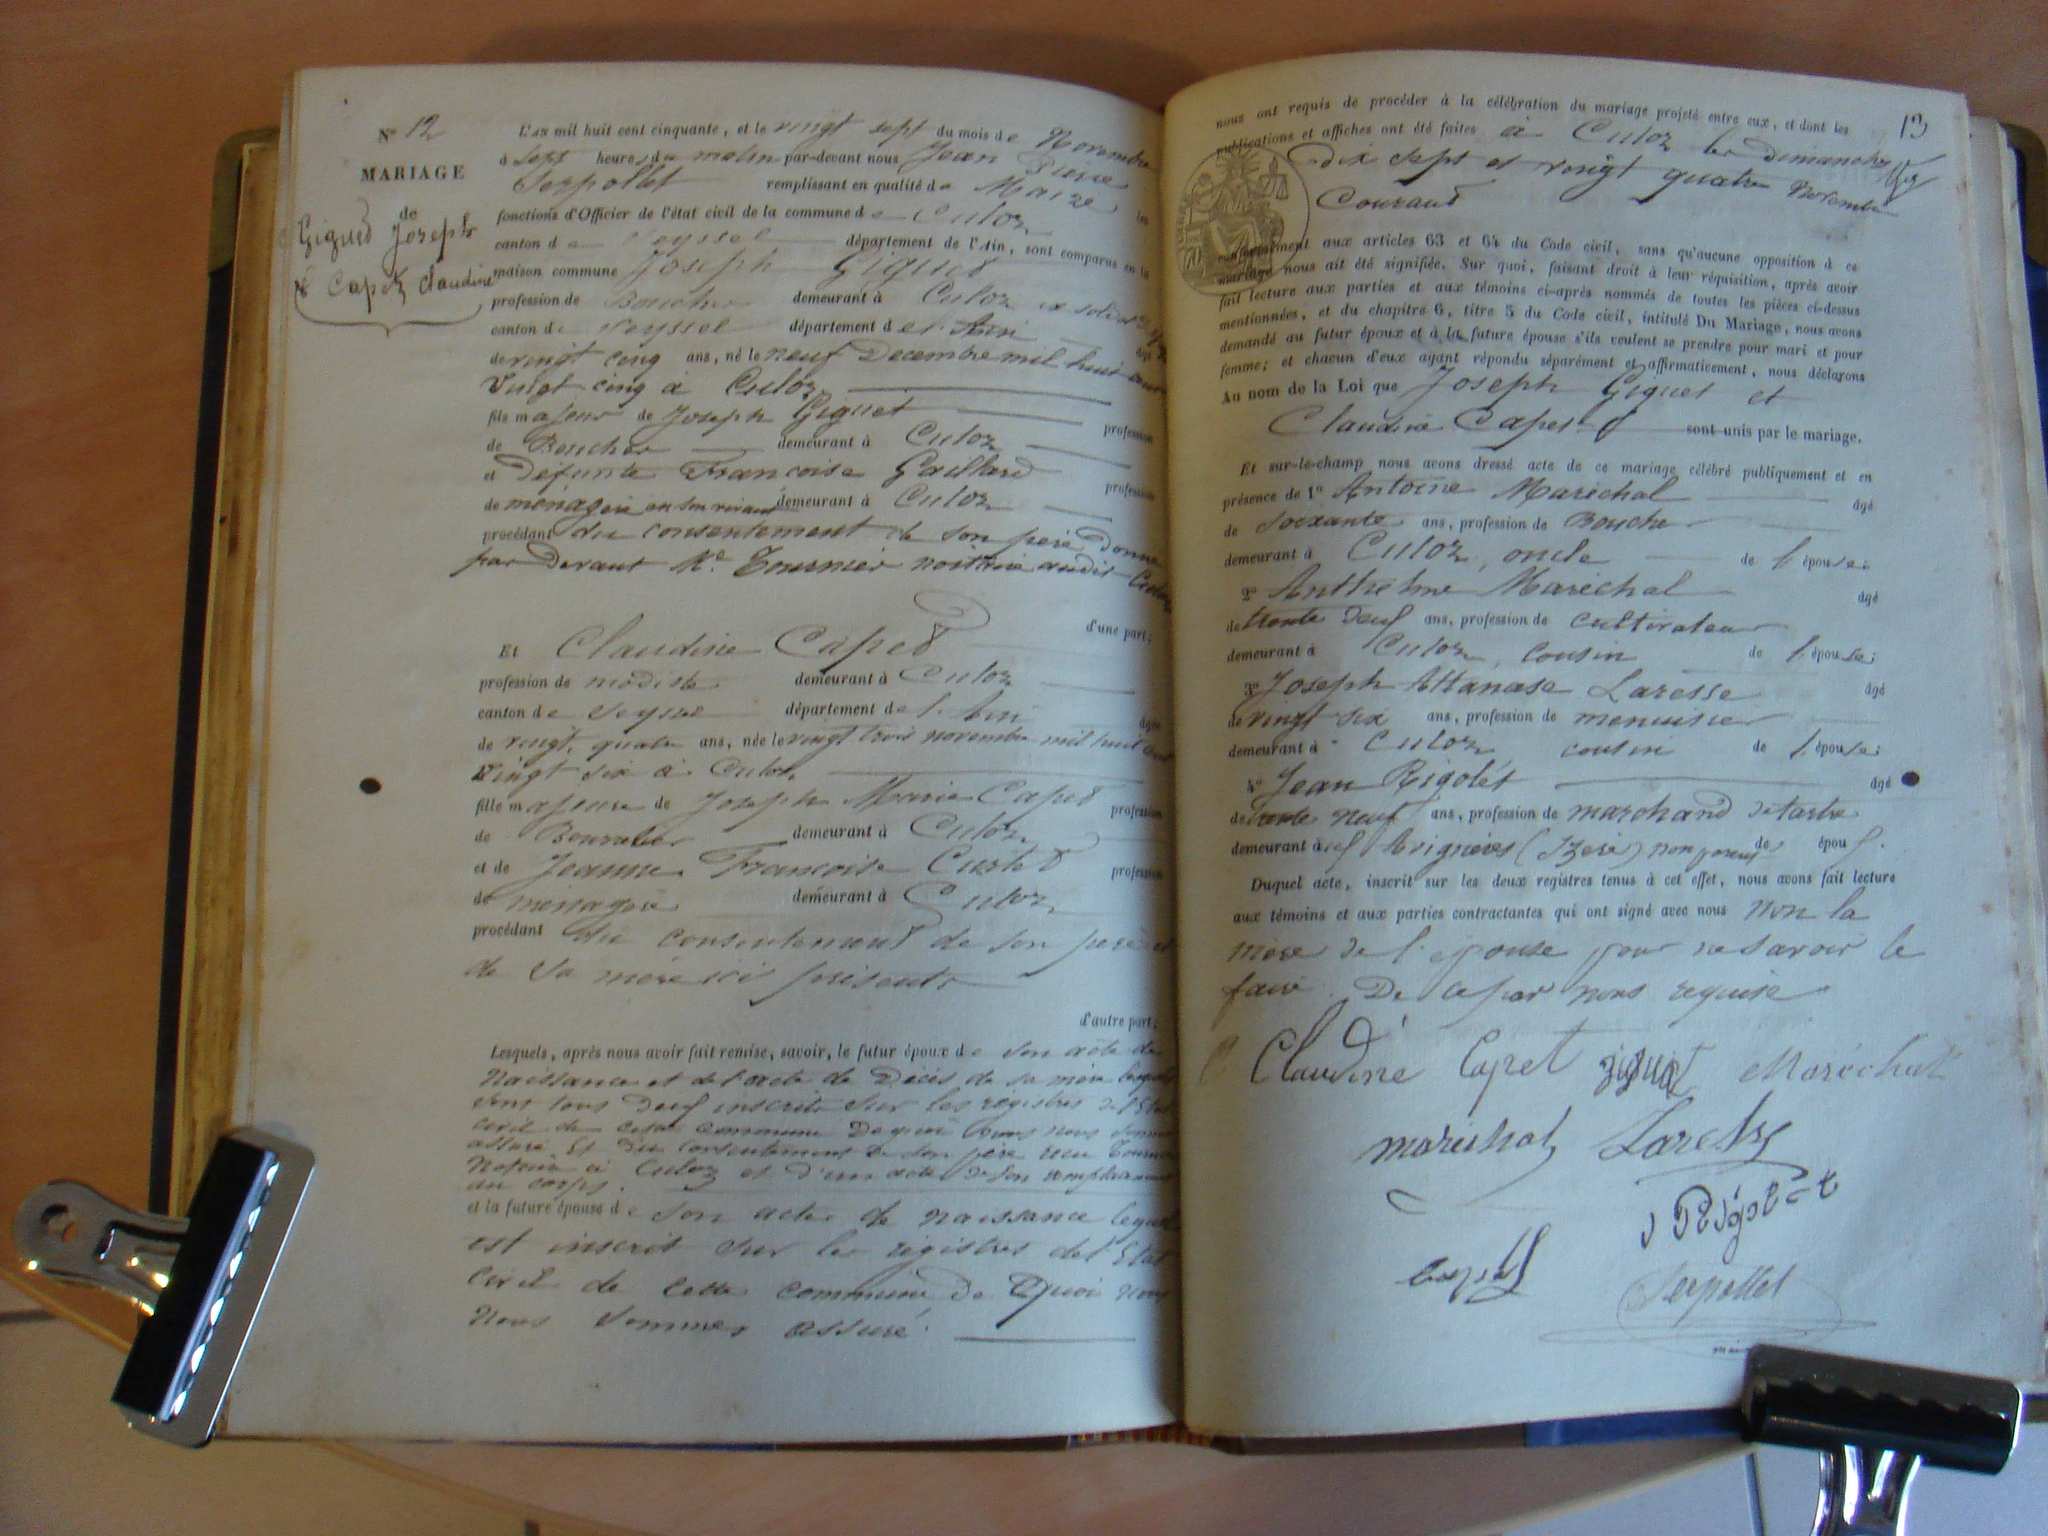 N° 12
MARIAGE
de
Giguet Joseph
& Capet Claudine
L'an mil huit cent cinquante, et le vingt sept du mois de Novembre
à sept heures du matin par-devant nous Jean Pierre
Serpollet remplissant en qualité de Maire les
fonctions d'Officier de l'état civil de la commune de Culoz
canton de Seyssel département de l'Ain, sont comparus en la
maison commune Joseph Giguet
profession de Boucher demeurant à Culoz ex soldat
canton de Seyssel département de l'Ain
de vingt cinq ans, né le neuf Decembre mil huit cent
Vingt cinq à Culoz
fils majeur de Joseph Giguet profession
de Boucher demeurant à Culoz
et Défunte Francoise Gaillard profession
de ménagère en son vivant demeurant à Culoz
procédant du consentement de son père, donné
par Devant Me. Tournier notaire audit Culoz
d'une part;
Et Claudine Capet
profession de modiste demeurant à Culoz
canton de Seyssel département de l'Ain âgée
de vingt quatre ans, née le vingt trois novembre mil huit cent
Vingt six à Culoz
fille majeure de Joseph Marie Capet profession
de Bourrelier demeurant à Culoz
et de Jeanne Francoise Custet profession
de ménagère demeurant à Culoz
procédant du consentement de son père et
de sa mère ici présents
d'autre part;
Lesquels, après nous avoir fait remise, savoir, le futur époux de son acte de
Naissance et de l'acte de Décès de sa mère lesquels
sont tous deux inscrits sur les registres de l'Etat
civil de cette commune De quoi nous nous sommes
assuré. Et du consentement de son père recu Tournier
Notaire à Culoz et d'un acte de son remplacement
au corps.
et la future épouse de son acte de naissance lequel
est inscrit sur les registres de l'Etat
Civil de cette commune De Quoi nous
nous sommes assuré.
13
nous ont requis de procéder à la célébration du mariage projeté entre eux, et dont les
publications et affiches ont été faites à Culoz les Dimanches
dix sept et vingt quatre Novembre
Courant
conformément aux articles 63 et 64 du Code civil, sans qu'aucune opposition à ce
mariage nous ait été signifiée. Sur quoi, faisant droit à leur réquisition, après avoir
fait lecture aux parties et aux témoins ci-après nommés de toutes les pièces ci-dessus
mentionnées, et du chapitre 6, titre 5 du Code civil, intitulé Du Mariage, nous avons
demandé au futur époux et à la future épouse s'ils veulent se prendre pour mari et pour
femme; et chacun d'eux ayant répondu séparément et affirmativement, nous déclarons
Au nom de la Loi que Joseph Giguet et
Claudine Capet sont unis par le mariage.
Et sur-le-champ nous avons dressé acte de ce mariage célébré publiquement et en
présence de 1° Antoine Maréchal âgé
de soixante ans, profession de Boucher
demeurant à Culoz, oncle de l'épouse;
2° Anthelme Maréchal âgé
de trente deux ans, profession de cultivateur
demeurant à Culoz, cousin de l'épouse;
3° Joseph Attanase Laresse âgé
de vingt six ans, profession de menuisier
demeurant à Culoz cousin de l'épouse;
4° Jean Rigolet âgé
de trente neuf ans, profession de marchand de tartre
demeurant à (Izère) non parent de épou
Duquel acte, inscrit sur les deux registres tenus à cet effet, nous avons fait lecture
aux témoins et aux parties contractantes qui ont signé avec nous Non la
mère de l'épouse pour ne savoir le
faire. De ce par nous requise
Claudine Capet giguet Maréchal
maréchal
Rigolet
capet
Serpollet